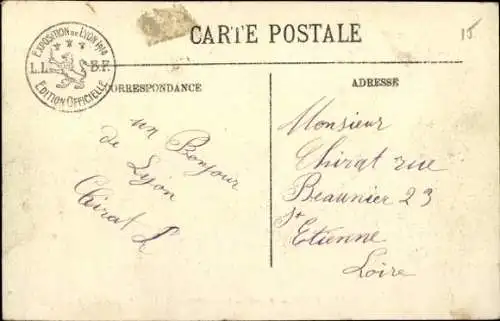 CARTE POSTALE
15
EXPOSITION DE LYON 1914
L.L. B.F.
EDITION OFFICIELLE
CORRESPONDANCE
ADRESSE
un Bonjour
de Lyon
Chirat L
Monsieur
Chirat rue
Beaunier 23
St
Etienne
Loire